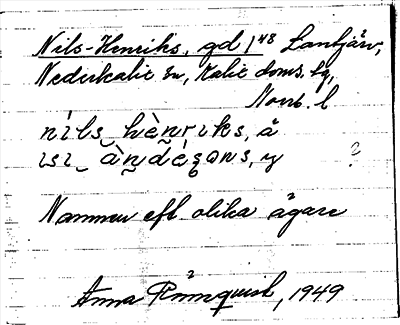 Nils-Henriks, gd 1⁄48 Lantjärv,
Nederkalix sn, Kalix doms. lg,
Norrb. l
nìls‿hèn̥rɩks, å
ɩsɩ‿àn̥désɷns, y ?
Namnen eft olika ägare
Anna Rönnquist, 1949